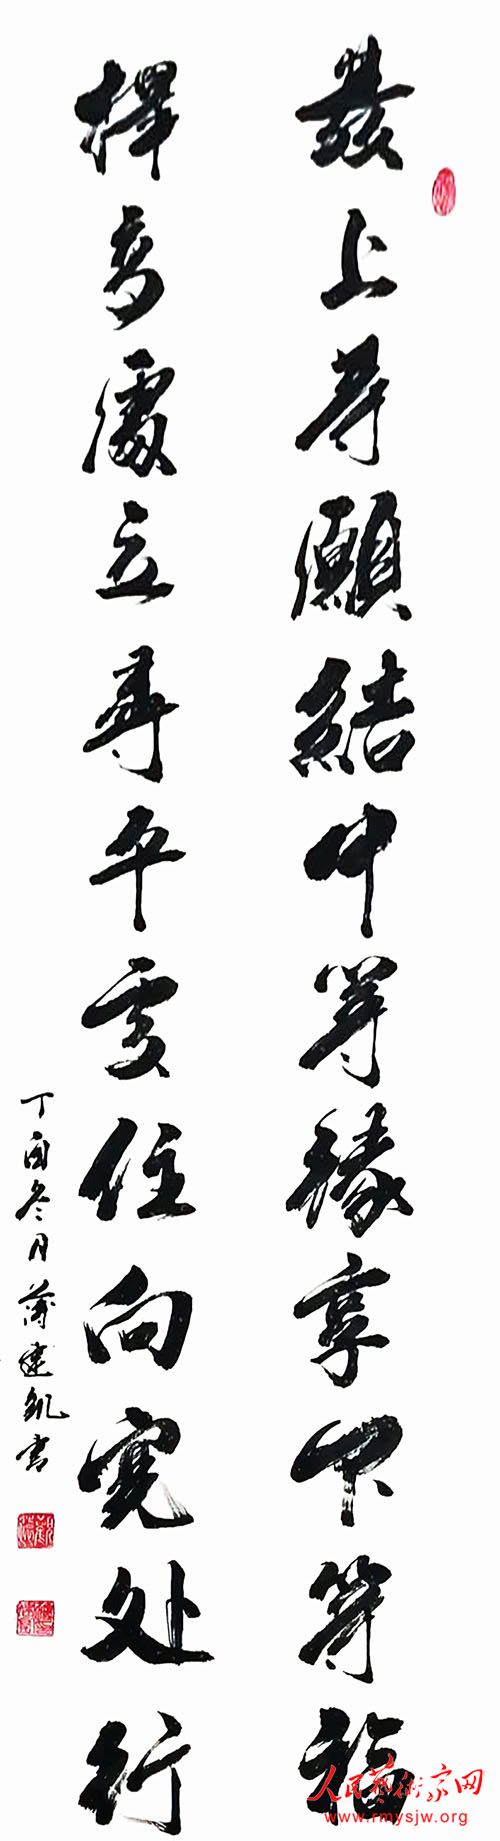 發上等願結中等緣享下等福
擇高處立尋平處住向寬处行
丁酉冬月蒲建凯書
人民艺术家网
www.rmysjw.org